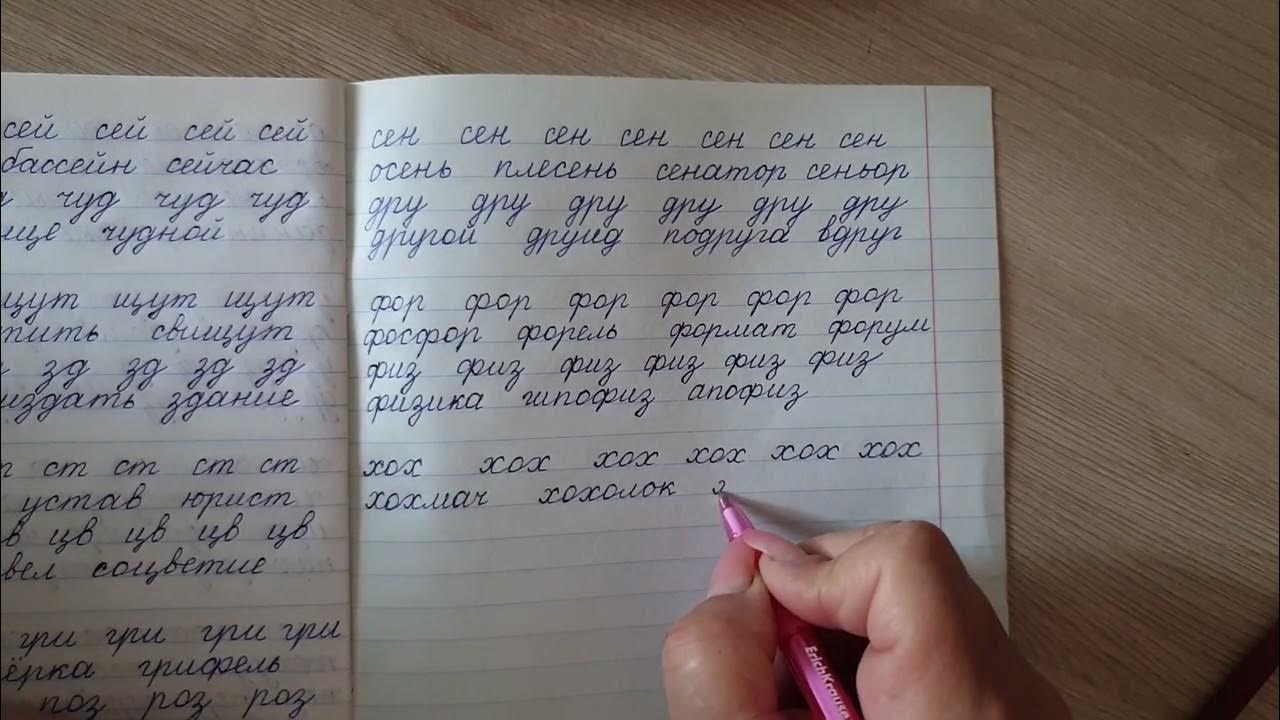 сей сей сей сей
бассейн сейчас
чуд чуд чуд
чудной
щут щут щут
свищут
зд зд зд зд
издать здание
ст ст ст ст
устав юрист
цв цв цв цв
соцветие
гри гри гри гри
грифель
роз роз
сен сен сен сен сен сен сен
осень плесень сенатор сеньор
дру дру дру дру дру дру
другой друид подруга вдруг
фор фор фор фор фор фор
фосфор форель формат форум
физ физ физ физ физ физ
физика гипофиз апофиз
хох хох хох хох хох хох
хохмач хохолок
ErichKrause